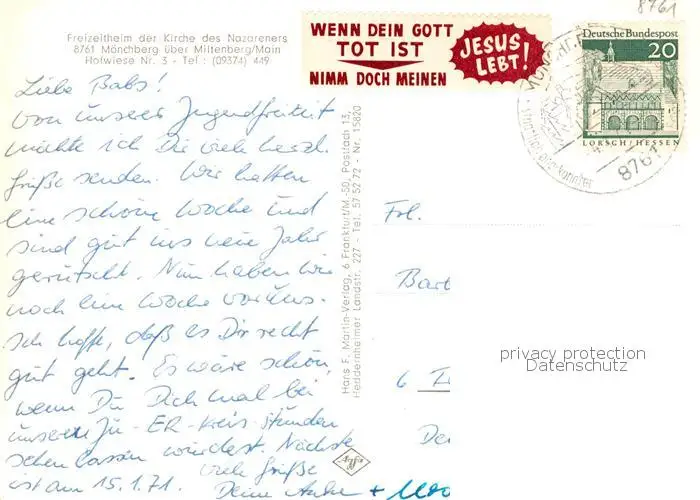 8761
Freizeitheim der Kirche des Nazareners
8761 Mönchberg über Miltenberg/Main
Hofwiese Nr. 3 - Tel.: (09374) 449
WENN DEIN GOTT
TOT IST
NIMM DOCH MEINEN
JESUS
LEBT!
Deutsche Bundespost
20
LORSCH/HESSEN
8761
Liebe Babs!
Von unserer Jugendfreizeit
möchte ich Dir viele herzl.
Grüße senden. Wir hatten
eine schöne Woche und
sind gut ins neue Jahr
gerutscht. Nun haben wir
noch eine Woche vor uns.
Ich hoffe, daß es Dir recht
gut geht. Es wäre schön,
wenn Du Dich mal bei
unseren Ju-ER-Kreis-Stunden
sehen lassen würdest. Nächste
ist am 15.1.71.
Viele Grüße
Deine Anke +
Hans F. Martin-Verlag, 6 Frankfurt/M.-50, Postfach 13,
Heddernheimer Landstr. 227 - Tel. 57 52 72 - Nr. 15820
Frl.
Bar
6
privacy protection
Datenschutz